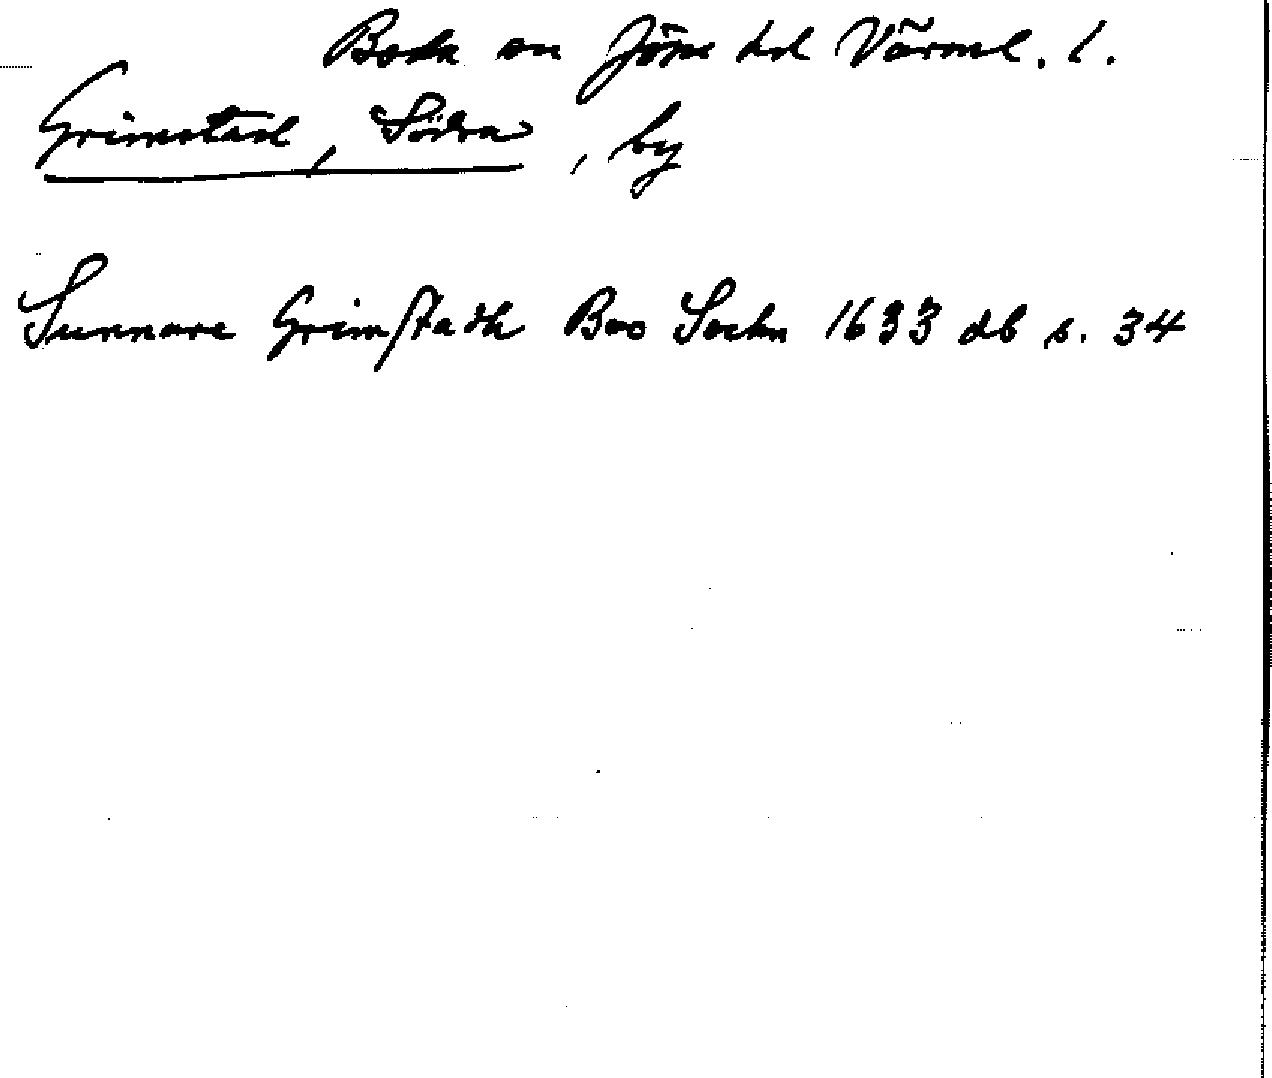 Boda sn Jösse hd Värml. l.
Grimstad, Södra, by
Sunnare Grimstadh Boo Sochn 1633 db s. 34